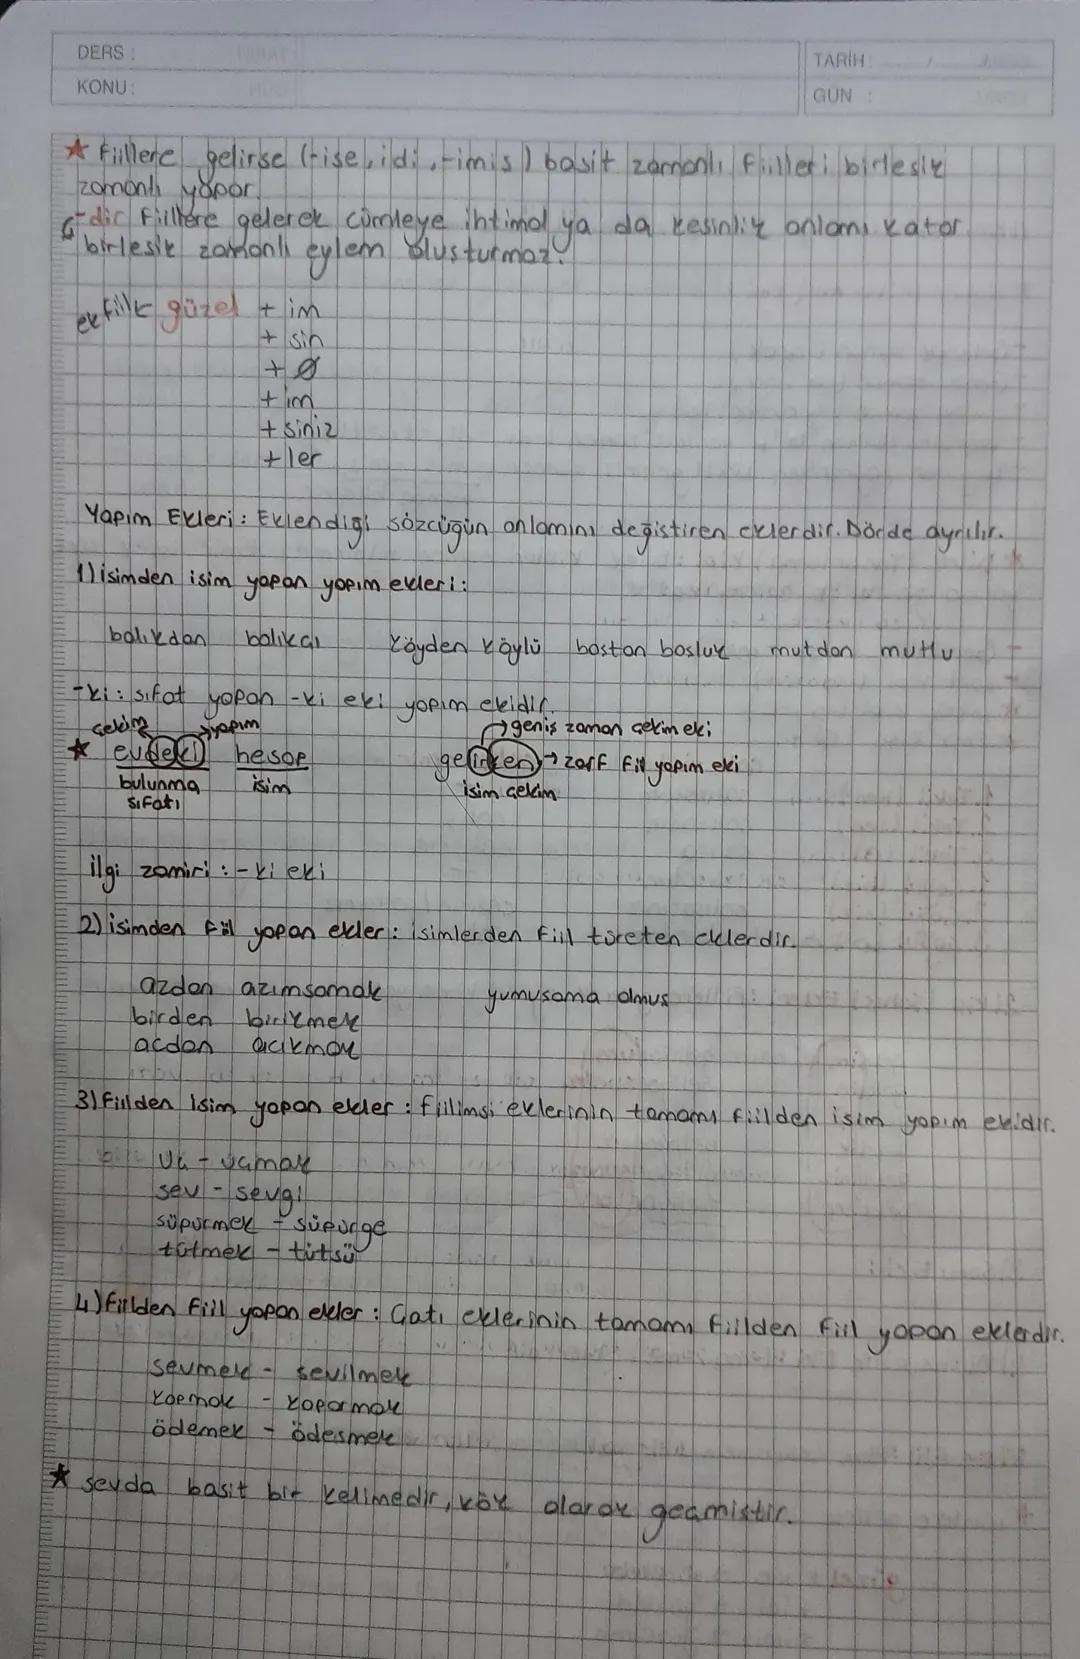 DERS :
KONU:
TARİH :
GÜN :
★ fiillere gelirse (-ise, idi, -imis) basit zamanlı fiilleri birlesik
zamanlı yapar.
-dir fiillere gelerek cümleye ihtimal ya da kesinlik anlamı katar
birlesik zamanlı eylem olusturmaz.
ek fiil güzel + im
+ sin
+ Ø
+ im
+ siniz
+ ler
Yapım Ekleri : Eklendiği sözcüğün anlamını değistiren eklerdir. Dörde ayrılır.
1) isimden isim yapan yapım ekleri :
balıkdan balıkcı köyden köylü bostan bosluk mutdan mutlu
-ki : sıfat yapan -ki eki yapım ekidir.
cekim yapım → geniş zaman cekim eki
★ evdeki hesap gelirken → zarf fiil yapım eki
bulunma isim isim cekim
sıfatı
ilgi zamiri : -ki eki
2) isimden fiil yapan ekler : isimlerden fiil türeten eklerdir.
azdan azımsamak yumusama olmus
birden birikmek
acdan acıkmak
3) fiilden isim yapan ekler : fiilimsi eklerinin tamamı fiilden isim yapım ekidir.
uc - ucmak
sev - sevgi
süpürmek - süpürge
tütmek - tütsü
4) fiilden fiil yapan ekler : Catı eklerinin tamamı fiilden fiil yapan eklerdir.
sevmek - sevilmek
kopmak - koparmak
ödemek - ödesmek
★ sevda basit bir kelimedir, kök olarak gecmistir.